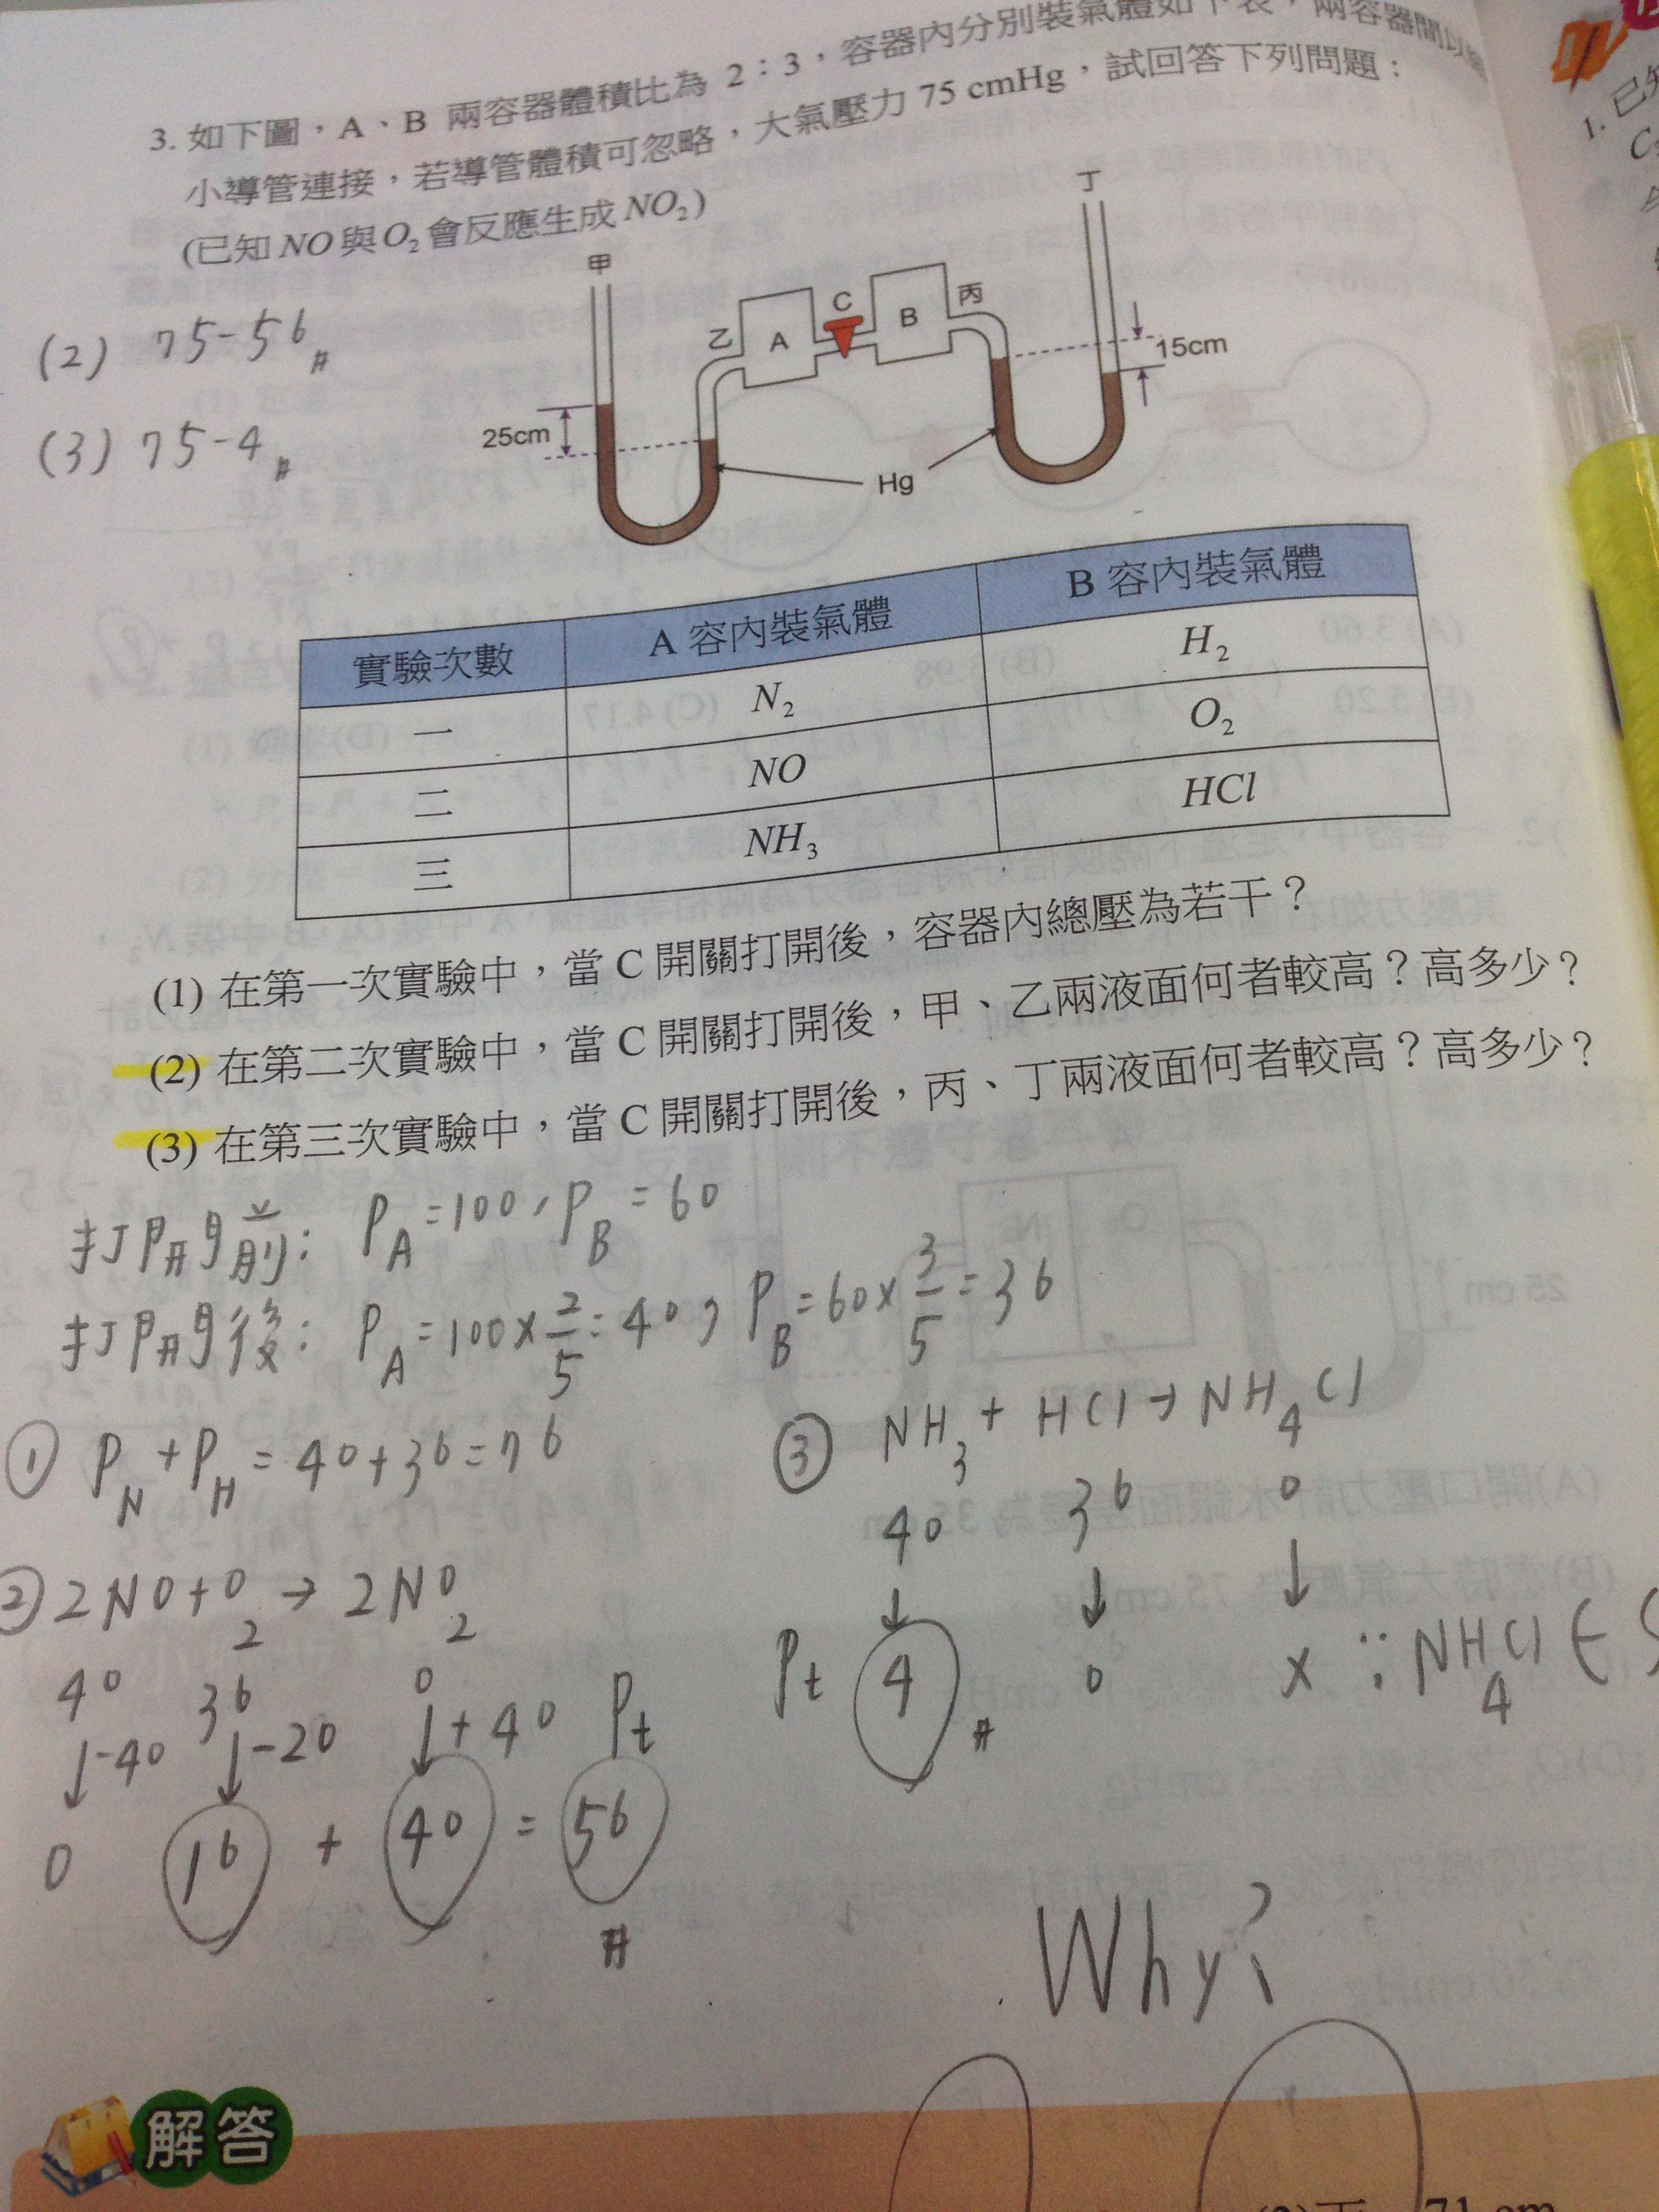 3. 如下圖，A、B 兩容器體積比為 2：3，容器內分別裝氣體如下表，兩容器間以
小導管連接，若導管體積可忽略，大氣壓力 75 cmHg，試回答下列問題：
(已知 NO 與 O₂ 會反應生成 NO₂)
(2) 75-56 #
(3) 75-4 #
甲
乙
A
C
B
丙
丁
15cm
25cm
Hg
實驗次數 A 容內裝氣體 B 容內裝氣體
一 N₂ H₂
二 NO O₂
三 NH₃ HCl
(1) 在第一次實驗中，當 C 開關打開後，容器內總壓為若干？
(2) 在第二次實驗中，當 C 開關打開後，甲、乙兩液面何者較高？高多少？
(3) 在第三次實驗中，當 C 開關打開後，丙、丁兩液面何者較高？高多少？
打開前： P_A=100, P_B=60
打開後： P_A=100×2/5=40, P_B=60×3/5=36
① P_N+P_H=40+36=76
② 2NO+O₂→2NO₂
40 36 0
↓-40 ↓-20 ↓+40 Pt
0 16 + 40 = 56
#
③ NH₃+HCl→NH₄Cl
40 36 0
↓ ↓ ↓
Pt 4 # 0 × ∵NH₄Cl
Why?
解答
71 cm
25 cm
1. 已知